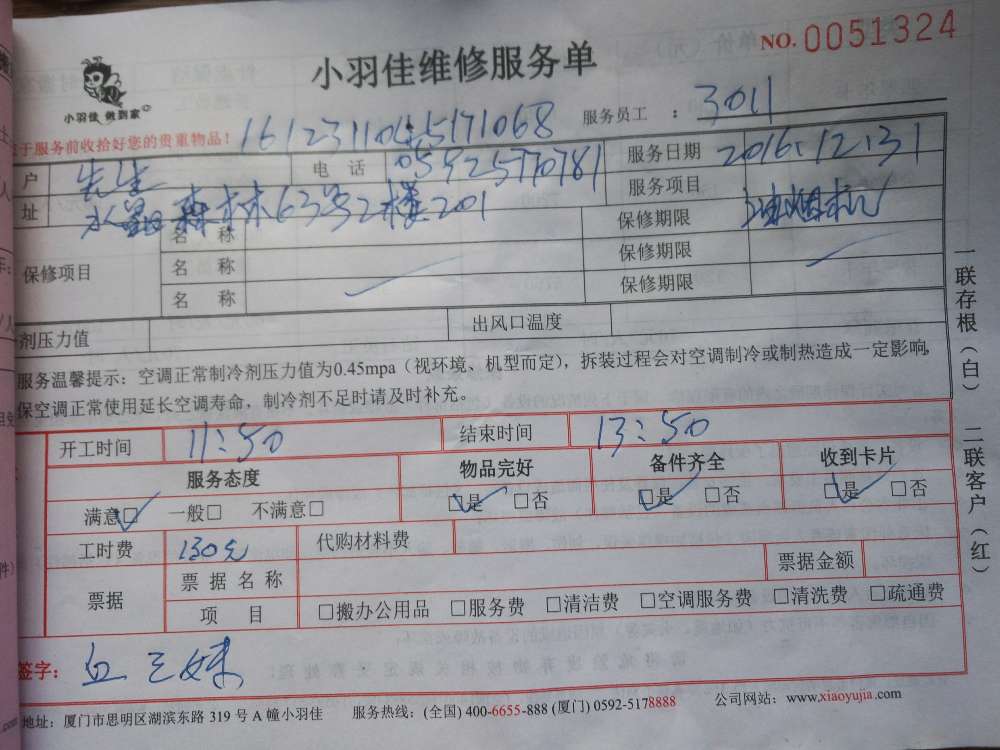 小羽佳维修服务单
NO. 0051324
小羽佳 做到家
于服务前收拾好您的贵重物品!
服务员工 : 3011
户 先生 电 话 05925770781 服务日期 2016.12.31
址 水晶森林63号2楼201 服务项目 油烟机
保修项目 名 称 保修期限
名 称 保修期限
名 称 保修期限
剂压力值 出风口温度
服务温馨提示：空调正常制冷剂压力值为0.45mpa（视环境、机型而定），拆装过程会对空调制冷或制热造成一定影响,
保空调正常使用延长空调寿命，制冷剂不足时请及时补充。
开工时间 11:50 结束时间 13:50
服务态度 物品完好 备件齐全 收到卡片
满意☑ 一般□ 不满意□ ☑是 □否 ☑是 □否 ☑是 □否
工时费 130元 代购材料费
票据 票 据 名 称 票据金额
项 目 □搬办公用品 □服务费 □清洁费 □空调服务费 □清洗费 □疏通费
签字: 三妹
地址：厦门市思明区湖滨东路 319 号 A 幢小羽佳 服务热线：(全国) 400-6655-888 (厦门) 0592-5178888 公司网站：www.xiaoyujia.com
一联存根（白） 二联客户（红）